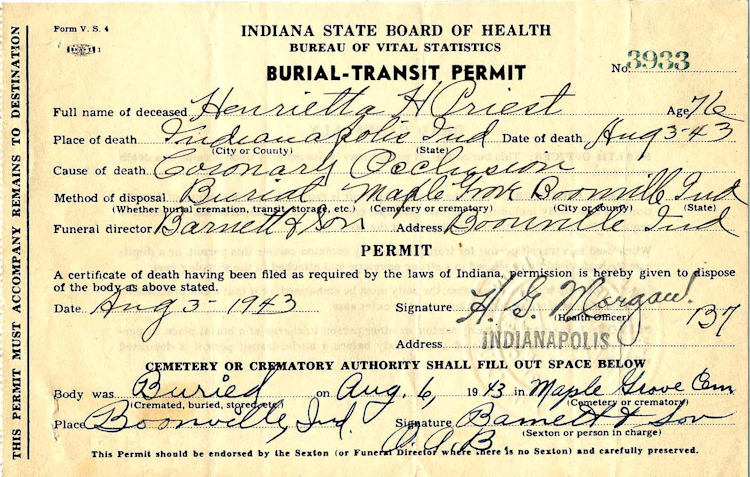 Form V. S. 4
1
INDIANA STATE BOARD OF HEALTH
BUREAU OF VITAL STATISTICS
BURIAL-TRANSIT PERMIT
No. 3933
Full name of deceased Henrietta H Priest Age 76
Place of death Indianapolis Ind Date of death Aug 3-43
(City or County) (State)
Cause of death Coronary Occlusion
Method of disposal Burial Maple Grove Boonville Ind
(Whether burial cremation, transit, storage, etc.) (Cemetery or crematory) (City or county) (State)
Funeral director Barnett & Son Address Boonville Ind
PERMIT
A certificate of death having been filed as required by the laws of Indiana, permission is hereby given to dispose
of the body as above stated.
Date Aug 3-1943 Signature H. G. Morgan.
(Health Officer) 137
Address INDIANAPOLIS
CEMETERY OR CREMATORY AUTHORITY SHALL FILL OUT SPACE BELOW
Body was Buried on Aug. 6, 1943 in Maple Grove Cem
(Cremated, buried, stored, etc.) (Cemetery or crematory)
Place Boonville, Ind. Signature Barnett & Son
(Sexton or person in charge)
This Permit should be endorsed by the Sexton (or Funeral Director where there is no Sexton) and carefully preserved.
THIS PERMIT MUST ACCOMPANY REMAINS TO DESTINATION